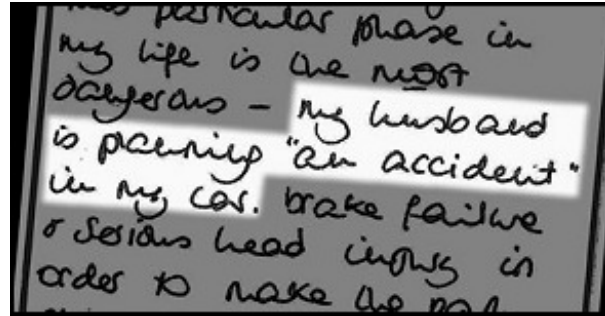 particular phase in
my life is the most
dangerous - my husband
is planning "an accident"
in my car. brake failure
& serious head injury in
order to make the